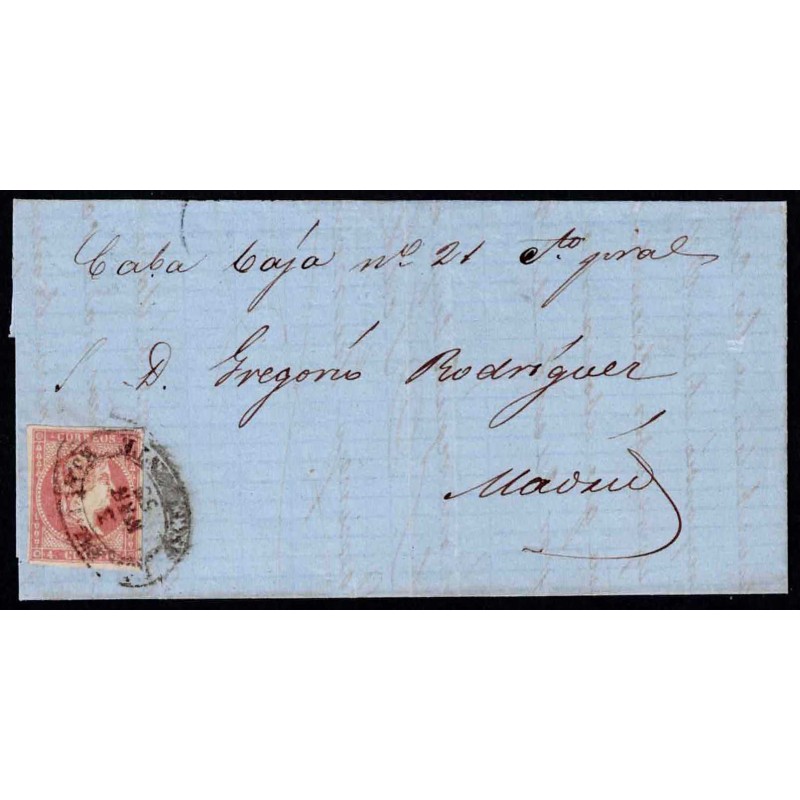 Caba baja nº 21 Pto pral
S. D. Gregorio Rodríguez
Madrid
CORREOS